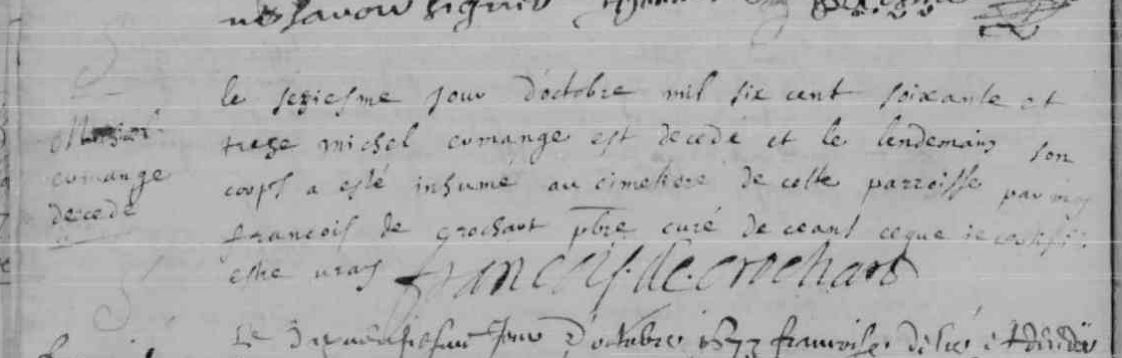 ne scavoir signer
le seziesme jour d'octobre mil six cent soixante et
Michel
treze michel comange est decedé et le lendemain son
comange
corps a esté inhumé au cimetiere de cette parroisse par moy
decedé
francois de crochart pbre curé de ceans ce que je certifie
estre vray francois. de. crochart
Le jour d'octobre 1673 francoise